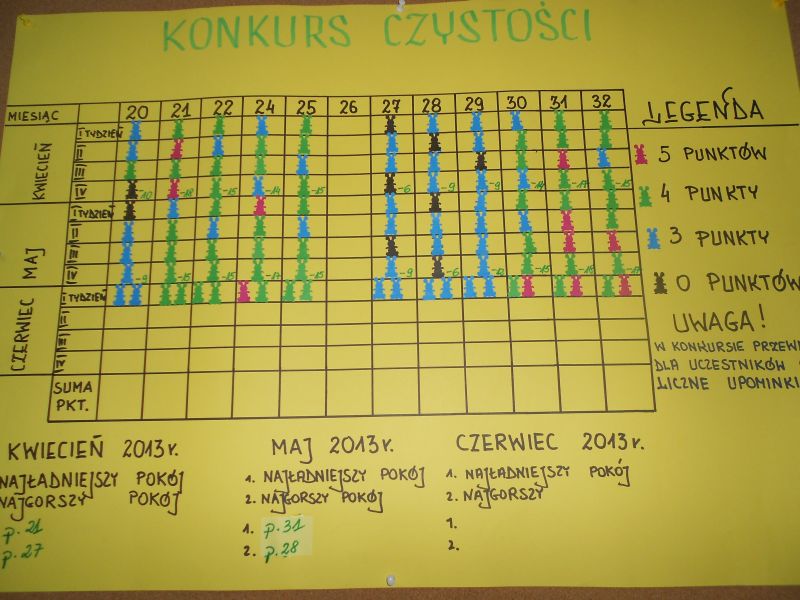 KONKURS CZYSTOŚCI
MIESIĄC 20 21 22 24 25 26 27 28 29 30 31 32
KWIECIEŃ
I TYDZIEŃ
II
III
IV -10 -18 -15 -14 -15 -6 -9 -9 -14 -17 -15
MAJ
I TYDZIEŃ
II
III
IV -9 -15 -15 -17 -15 -9 -6 -12 -15 -19 -17
CZERWIEC
I TYDZIEŃ
II
III
IV
SUMA
PKT.
LEGENDA
5 PUNKTÓW
4 PUNKTY
3 PUNKTY
0 PUNKTÓW
UWAGA!
W KONKURSIE
DLA UCZESTNIKÓW
LICZNE UPOMINKI
KWIECIEŃ 2013r.
NAJŁADNIEJSZY POKÓJ
NAJGORSZY POKÓJ
p. 21
p. 27
MAJ 2013r.
1. NAJŁADNIEJSZY POKÓJ
2. NAJGORSZY POKÓJ
1. p. 31
2. p. 28
CZERWIEC 2013r.
1. NAJŁADNIEJSZY POKÓJ
2. NAJGORSZY
1.
2.